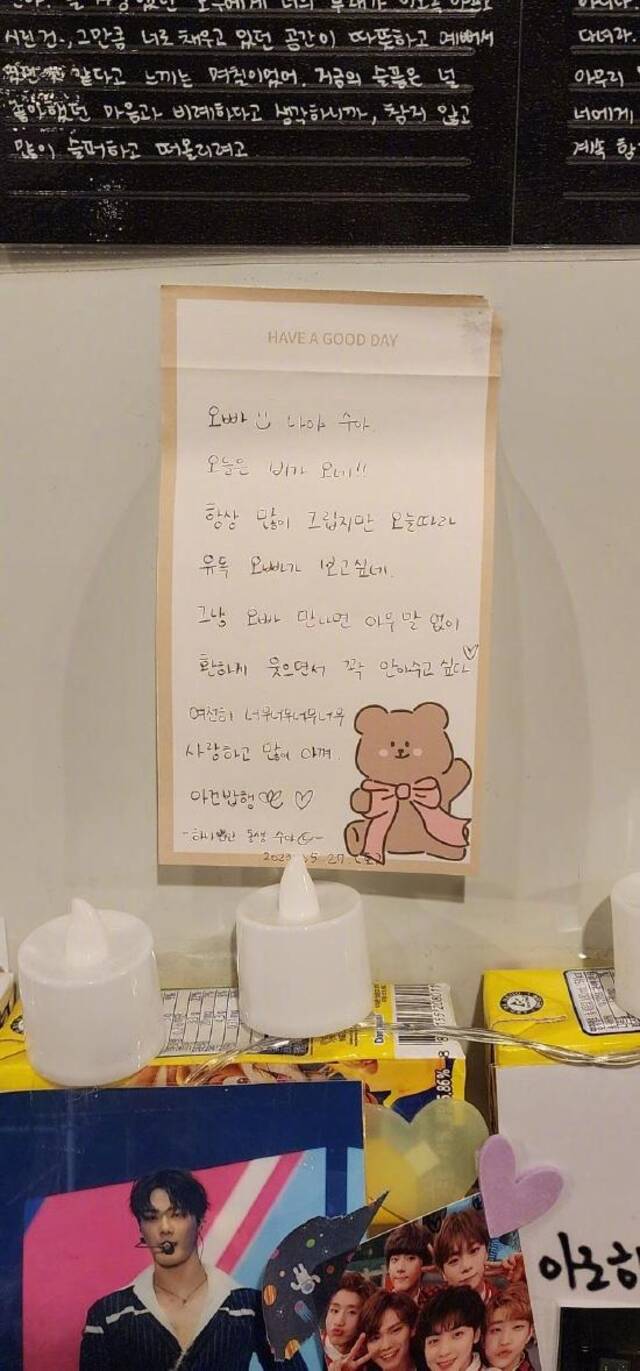 시린건., 그만큼 너로 채우고 있던 공간이 따뜻하고 예뻐서
같다고 느끼는 며칠이었어. 지금의 슬픔은 널
좋아했던 마음과 비례하다고 생각하니까, 참지 않고
많이 슬퍼하고 떠올리려고
다녀라.
아무리
너에게
계속
HAVE A GOOD DAY
오빠 나야 수아.
오늘은 비가 오네!!
항상 많이 그립지만 오늘따라
유독 오빠가 보고싶네.
그냥 오빠 만나면 아무 말 없이
환하게 웃으면서 꽉 안아주고 싶다♡
여전히 너무너무너무너무
사랑하고 많이 아껴.
아컨밥행 ♡
동생 수아
5. 27.